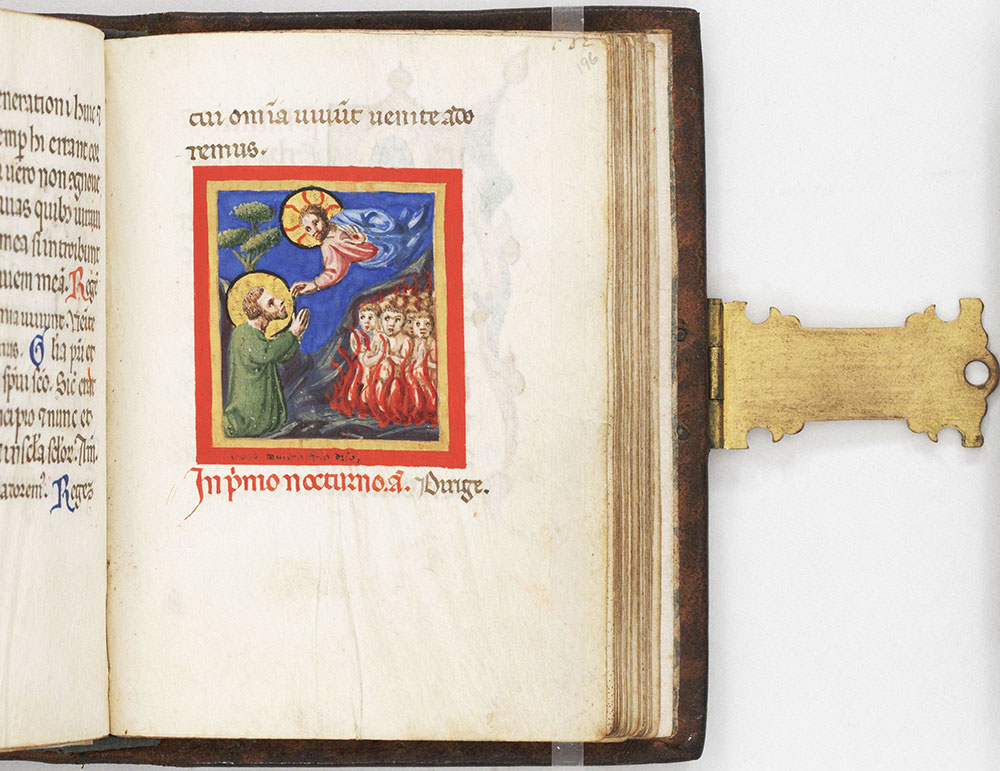 neration i huic ⁊
emp̱ hi errant cor
uero non agnoue
uias quibꝫ iuraui
mea si introibunt
quiem meã. Regẽ
nia uiuunt. Venite
rnus. Glia pr̃i et
spũi sc̃o. Sic erat
ncipio ⁊ nunc et
in sc̃la sc̃lor̃. Am̃.
atorem̃. Regẽ
196
cui om̃ia uiuũt uenite ado
remus.
In p̃mo nocturno. a͞. Dirige.